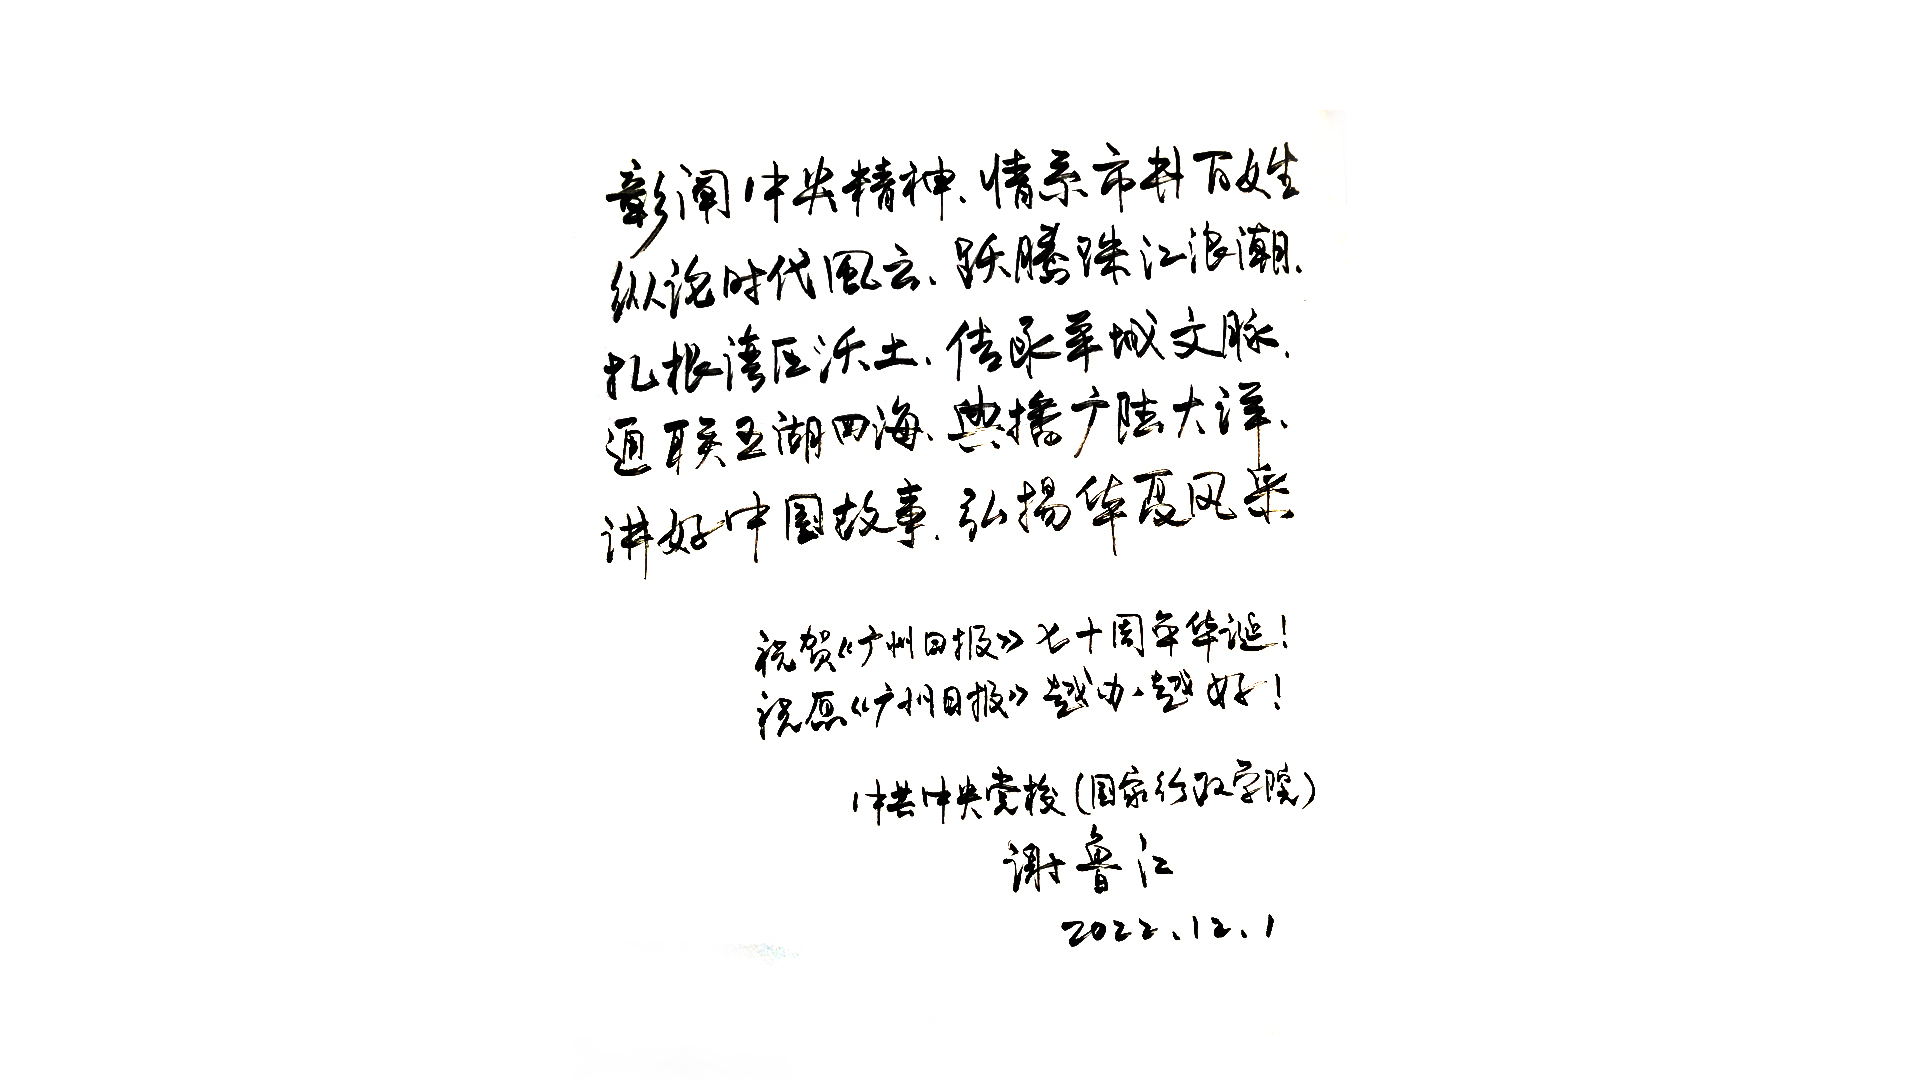 彰阐中央精神、情系市井百姓
纵论时代風云、跃腾珠江浪潮、
扎根湾区沃土、传承羊城文脉、
通联五湖四海、典播广陆大洋、
讲好中国故事、弘扬华夏风采
祝贺《广州日报》七十周年华诞！
祝愿《广州日报》越办越好！
中共中央党校（国家行政学院）
谢鲁江
2022.12.1